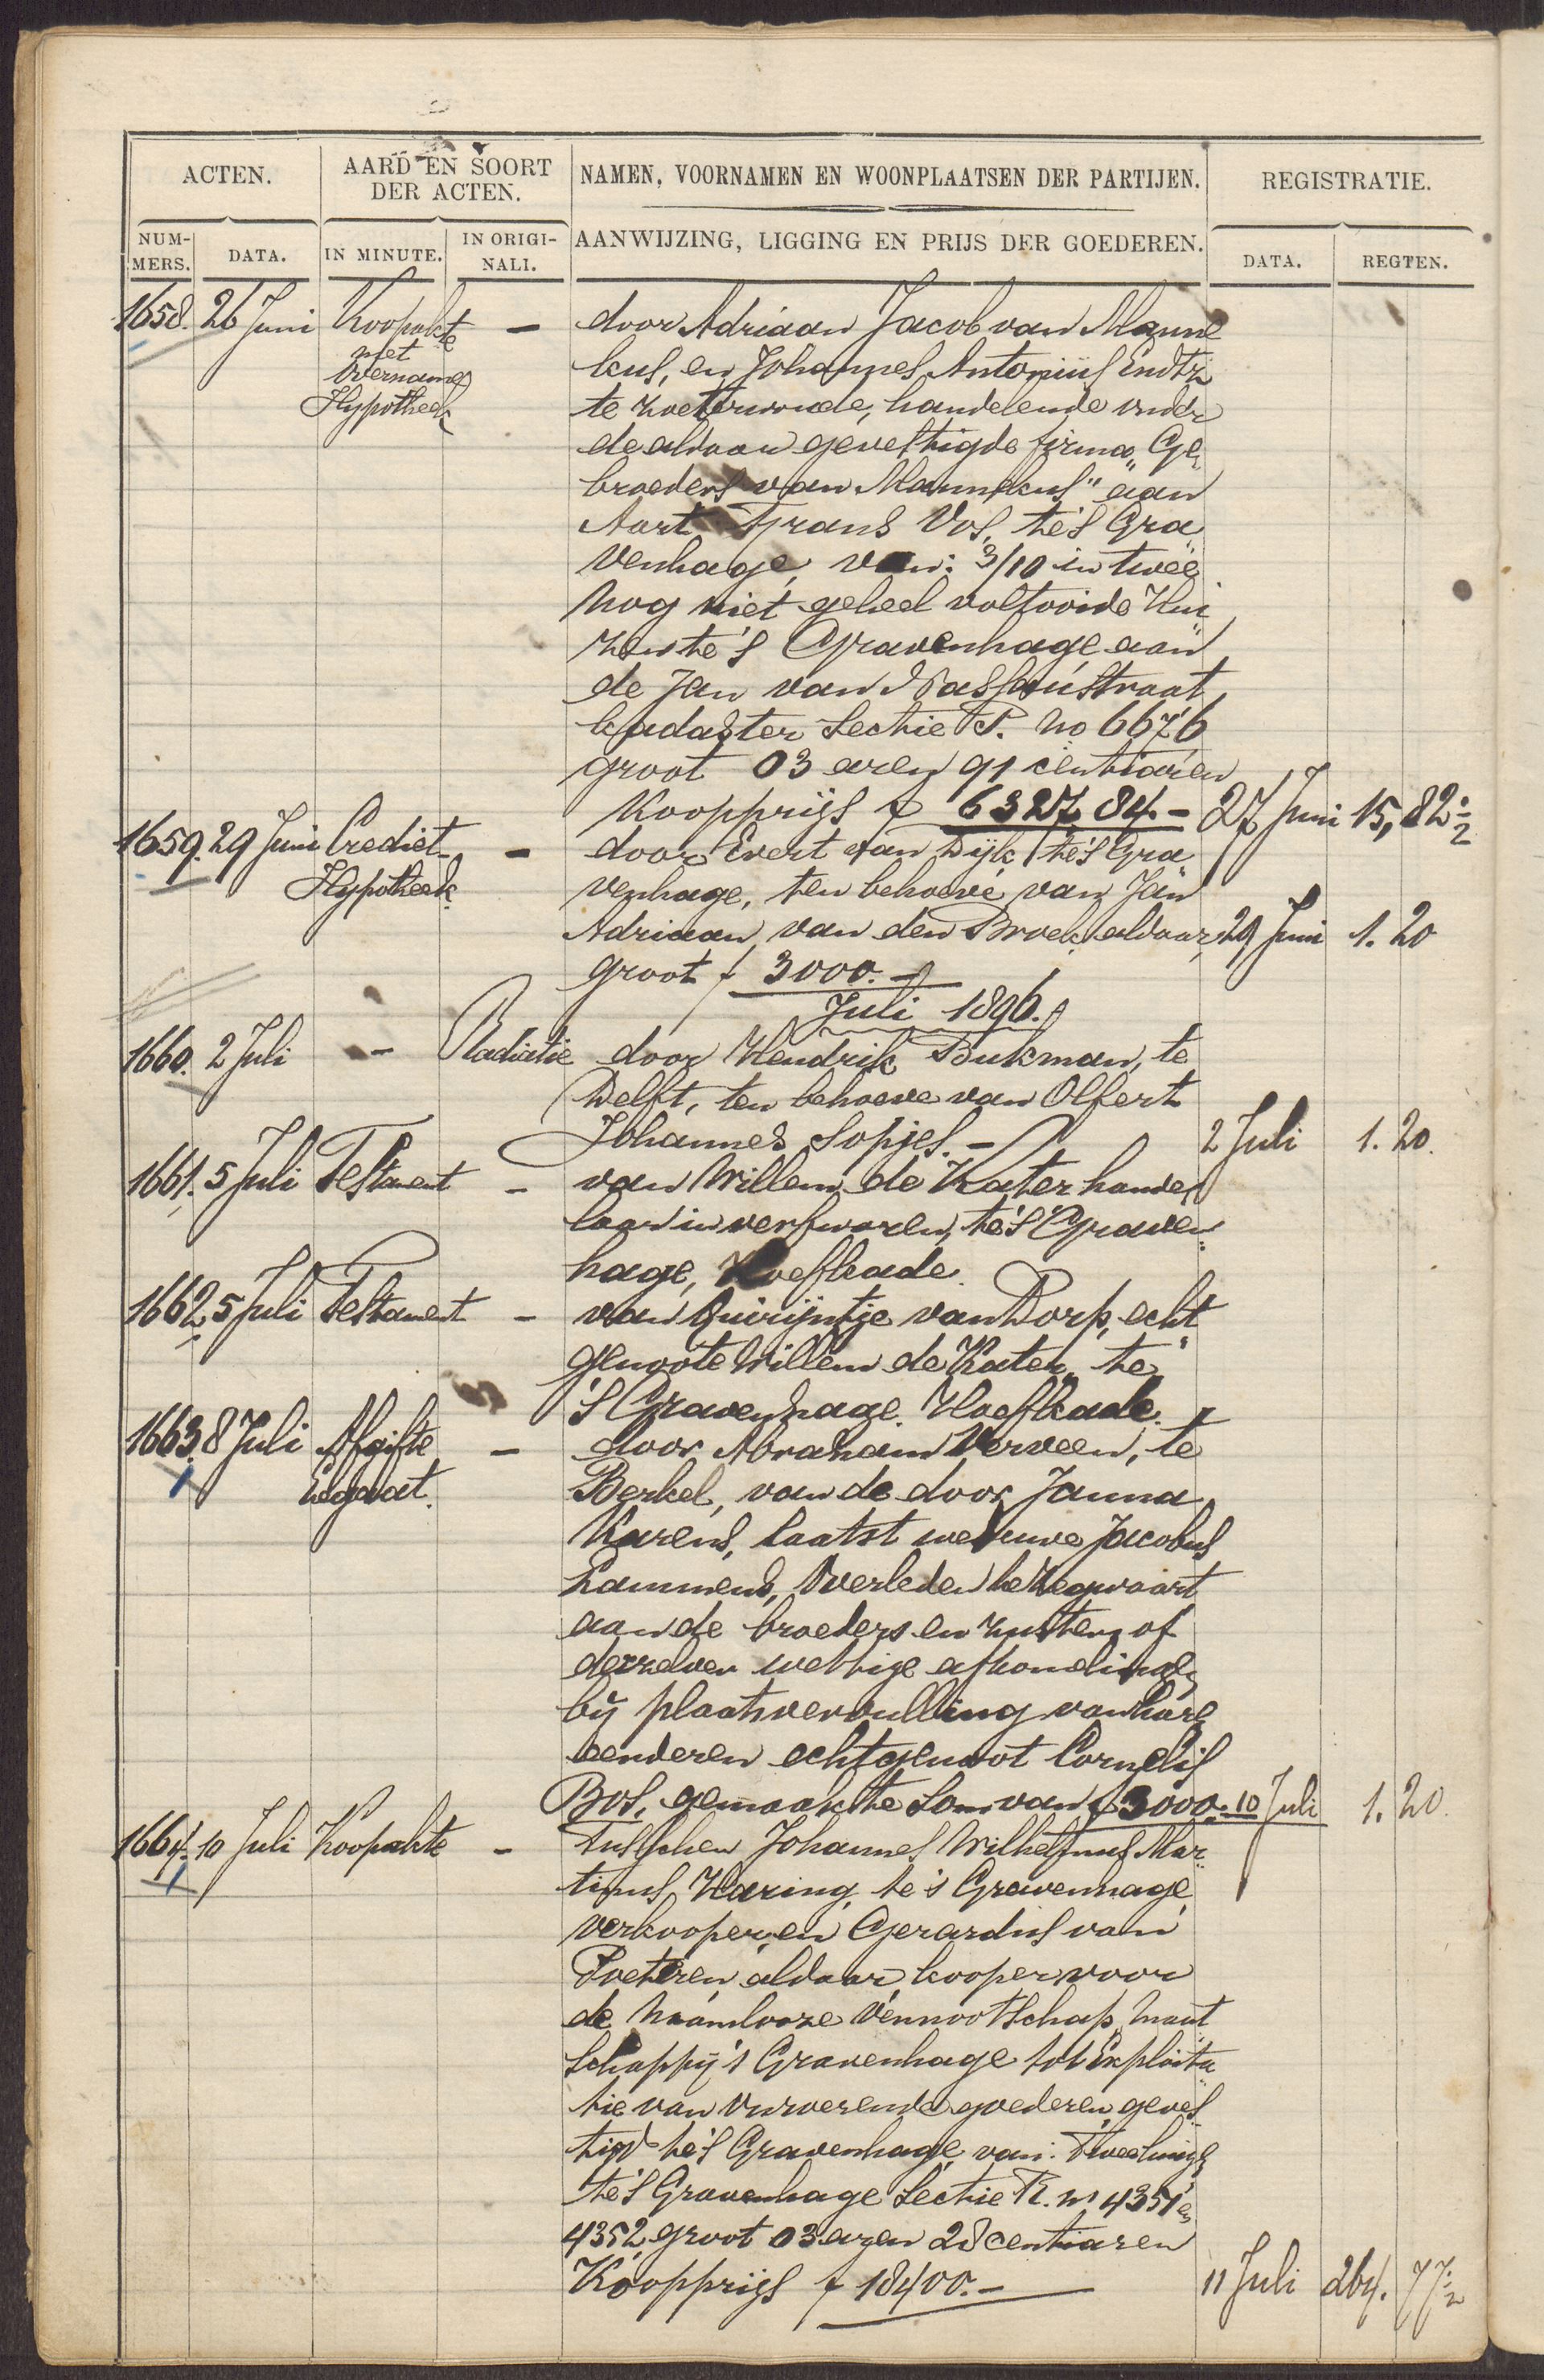 ACTEN. AARD EN SOORT DER ACTEN. NAMEN, VOORNAMEN EN WOONPLAATSEN DER PARTIJEN. REGISTRATIE.
NUMMERS. DATA. IN MINUTE. IN ORIGINALI. AANWIJZING, LIGGING EN PRIJS DER GOEDEREN. DATA. REGTEN.
1658. 26 Juni Koopakte - door Adriaan Jacob van Manne
met
overname kus, en Johannes Antonius Endtz
Hypotheek te Zoeterwoude, handelende onder
de aldaar gevestigde firma "Ge
broeders van Mannekus" aan
Aart Frans Vos, te 's Gra
venhage, van: 3/10 in twee
nog niet geheel voltooide Hui
zen te 's Gravenhage aan
de Jan van Nassaustraat
kadaster Sectie P. no 6676
groot 03 aren 91 centiaren
Koopprijs f 6327,84.- 27 Juni 15,82 1/2
1659. 29 Juni Crediet - door Evert van Dijk te 's Gra
Hypotheek. venhage, ten behoeve van Jan
Adriaan van den Broek aldaar, 29 Juni 1.20
groot f 3000.-
Juli 1896.
1660. 2 Juli - Radiatie door Hendrik Bukman, te
Delft, ten behoeve van Olfert
Johannes Sopjes.- 2 Juli 1.20.
1661. 5 Juli Testament - van Willem de Kater hande
laar in verfwaren, te 's Graven
hage, Hoefkade.
1662. 5 Juli Testament - van Quirijntje van Dorp, echt
genoote Willem de Kater, te
's Gravenhage. Hoefkade.
1663. 8 Juli Afgifte - door Abraham Verveen, te
Legaat. Berkel, van de door Janna
Karens, laatst weduwe Jacobus
Lammens, overleden te Zegwaart
aan de broeders en zusters of
derzelver wettige afkomelingen
bij plaatsvervulling van haren
eerderen echtgenoot Cornelis
Bos, gemaakte som van f 3000.- 10 Juli 1.20.
1664. 10 Juli Koopakte - tusschen Johannes Wilhelmus Mar
tinus Haring, te 's Gravenhage
verkooper, en Gerardus van
Poeteren, aldaar, kooper voor
de Naamlooze Vennootschap, Maat
schappij 's Gravenhage tot Exploita
tie van onroerende goederen, geves
tigd te 's Gravenhage van:
te 's Gravenhage Sectie R. no 4351 en
4352, groot 03 aren 28 centiaren
Koopprijs f 18400.- 11 Juli 264.77 1/2